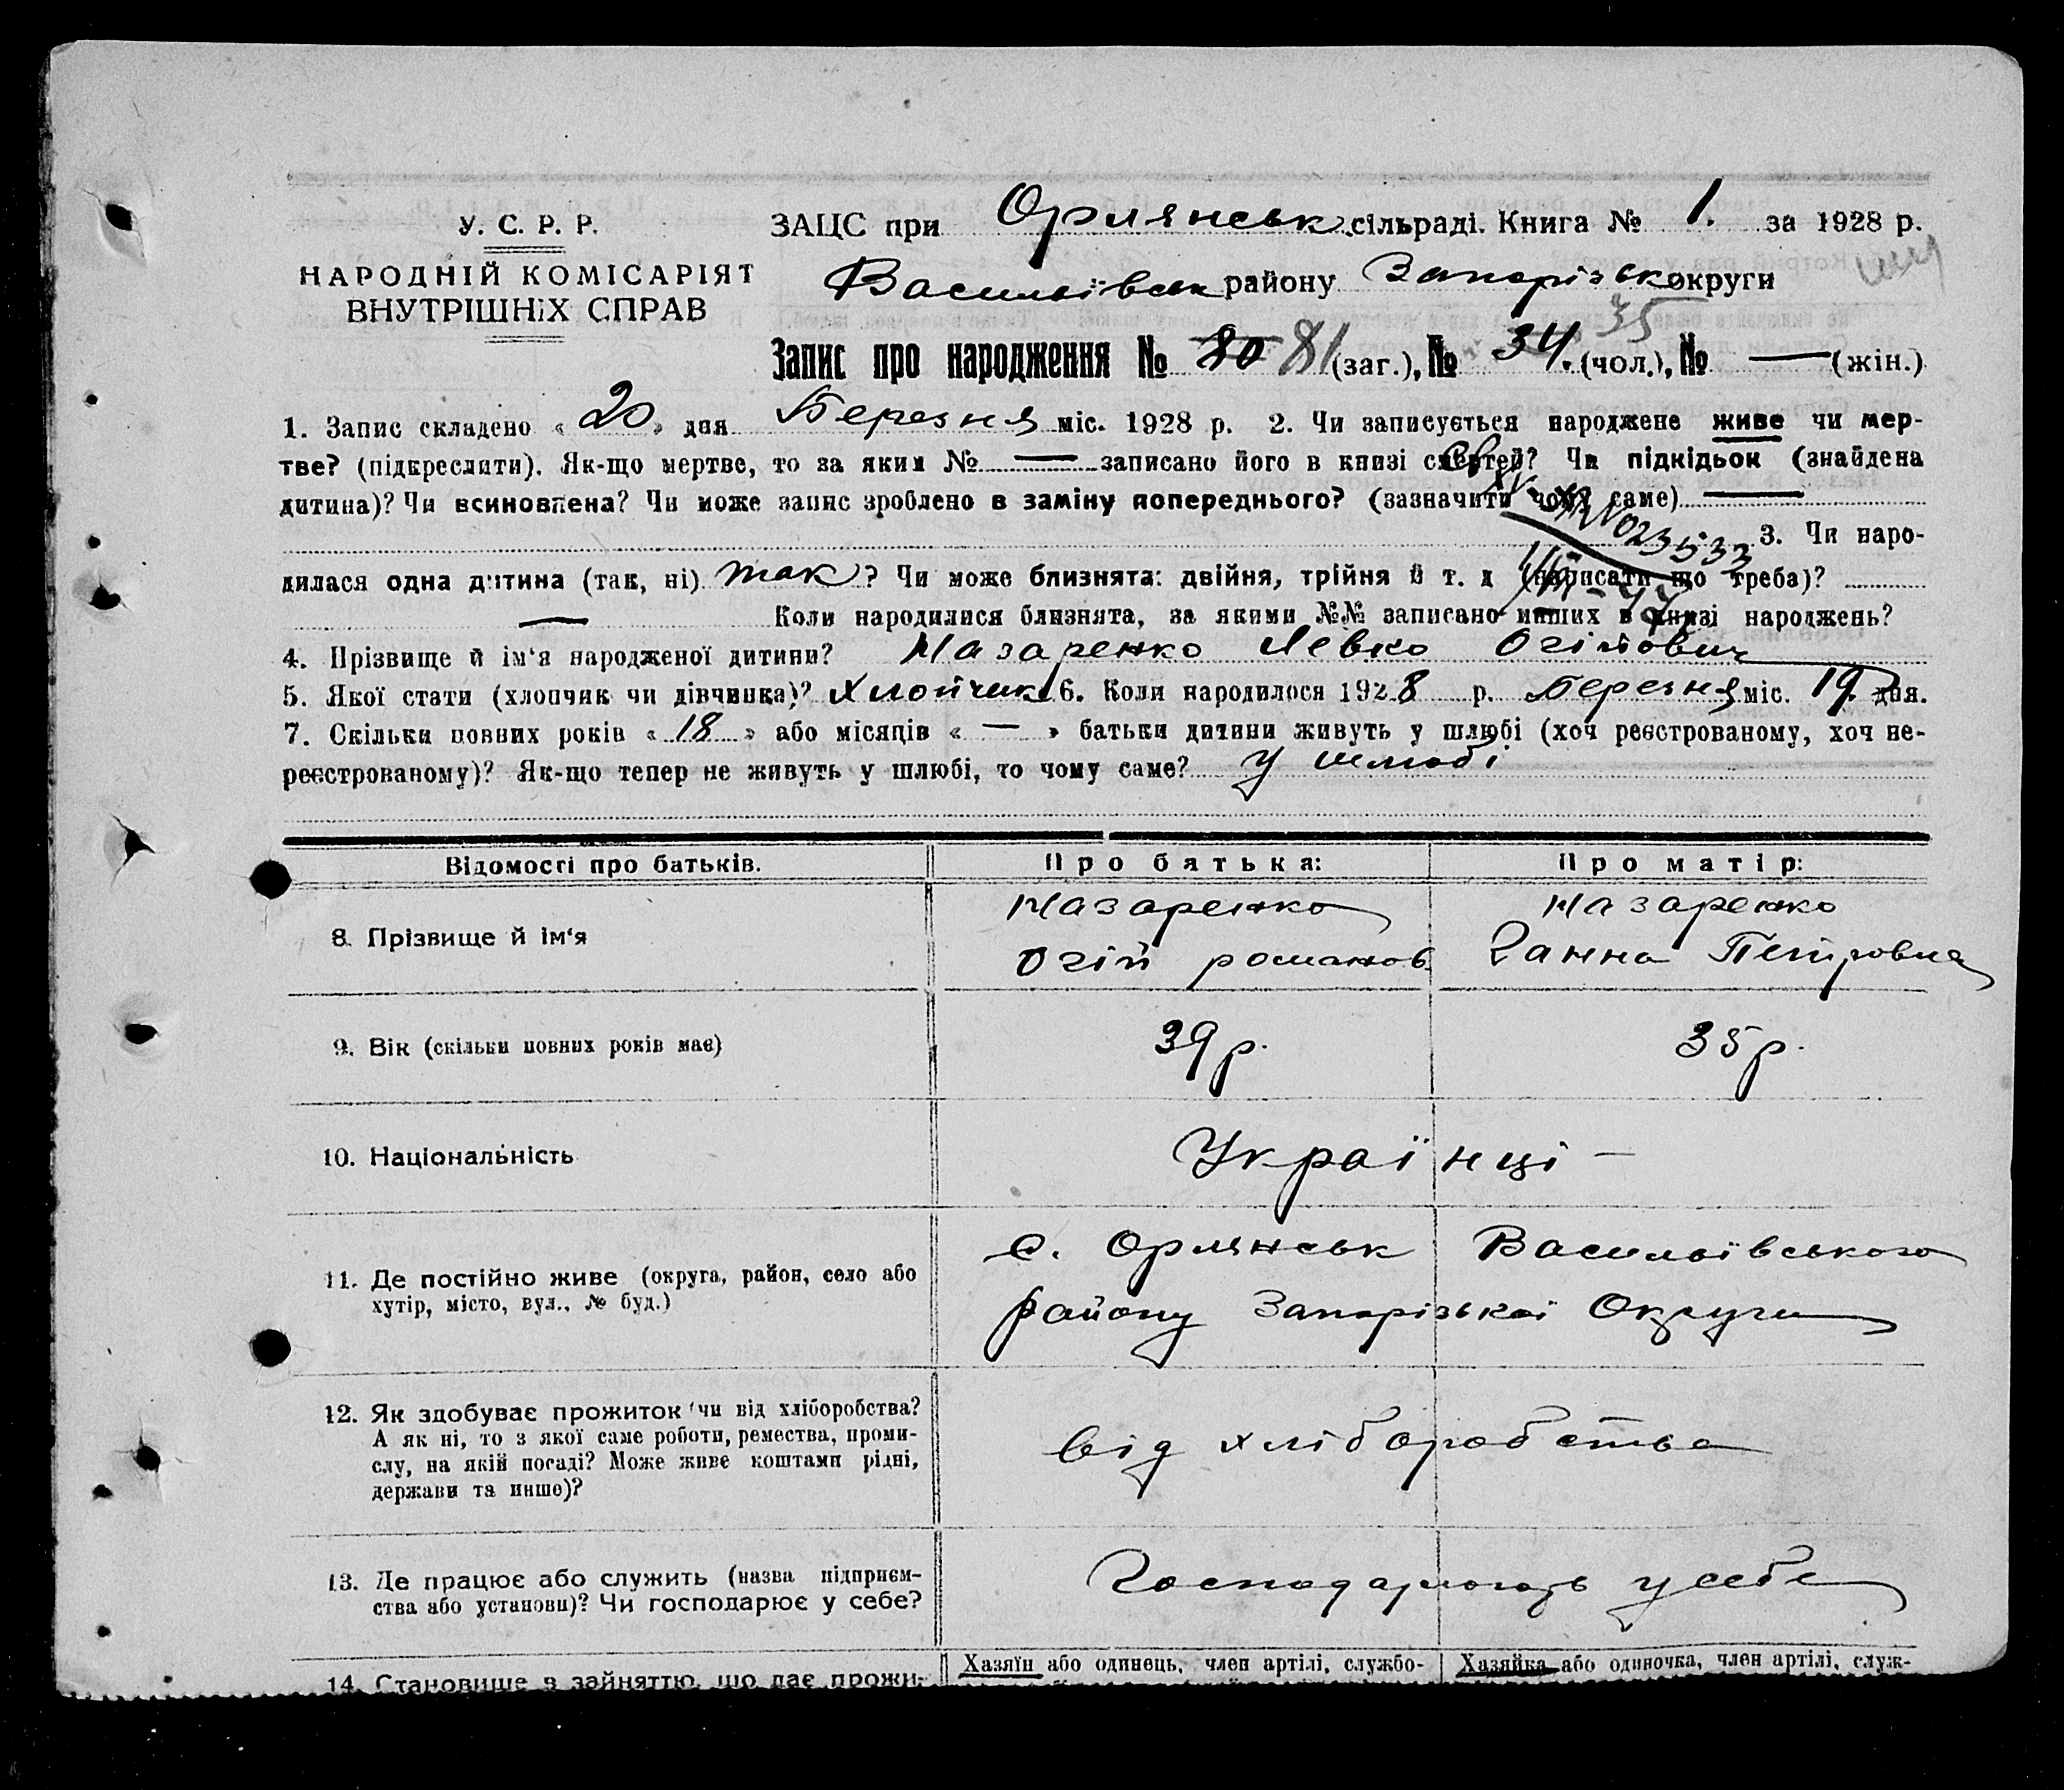 У. С. Р. Р.
НАРОДНІЙ КОМІСАРІЯТ
ВНУТРІШНІХ СПРАВ
ЗАЦС при Орлянськ. сільраді. Книга № 1. за 1928 р.
Васильівськ району Запорізьк округи
35
Запис про народження № 80 81 (заг.), № 34. (чол.), № — (жін.)
1. Запис складено « 20 » дня Березня міс. 1928 р. 2. Чи записується народжене живе чи мер-
тве? (підкреслити). Як-що мертве, то за яким № — записано його в книзі смертей? Чи підкідьок (знайдена
дитина)? Чи всиновлена? Чи може запис зроблено в заміну попереднього? (зазначити чому саме) —
023533
3. Чи наро-
дилася одна дитина (так, ні) так? Чи може близнята: двійня, трійня й т. д (написати що треба)?
— Коли народилися близнята, за якими №№ записано инших в книзі народжень?
4. Прізвище й ім'я народженої дитини? Назаренко Левко Огійович
5. Якої стати (хлопчик чи дівчинка)? хлопчик 6. Коли народилося 1928 р. Березня міс. 19 дня.
7. Скільки повних років « 18 » або місяців « — » батьки дитини живуть у шлюбі (хоч реєстрованому, хоч не-
реєстрованому)? Як-що тепер не живуть у шлюбі, то чому саме? У шлюбі
Відомості про батьків. Про батька: Про матір:
8. Прізвище й ім'я
Назаренко
Огій романов.
Назаренко
Ганна Петровна
9. Вік (скільки повних років має) 39 р. 35 р.
10. Національність Українці –
11. Де постійно живе (округа, район, село або
хутір, місто, вул., № буд.)
с. Орлянськ Васильівського
району Запорізької Округи
12. Як здобуває прожиток чи від хліборобства?
А як ні, то з якої саме роботи, ремества, проми-
слу, на якій посаді? Може живе коштами рідні,
держави та инше)?
від хліборобства
13. Де працює або служить (назва підприєм-
ства або установи)? Чи господарює у себе?
Господарюють у себе
14. Становище в зайняттю, що дає прожи-
Хазяїн або одинець, член артілі, службо-
Хазяйка або одиночка, член артілі, служ-